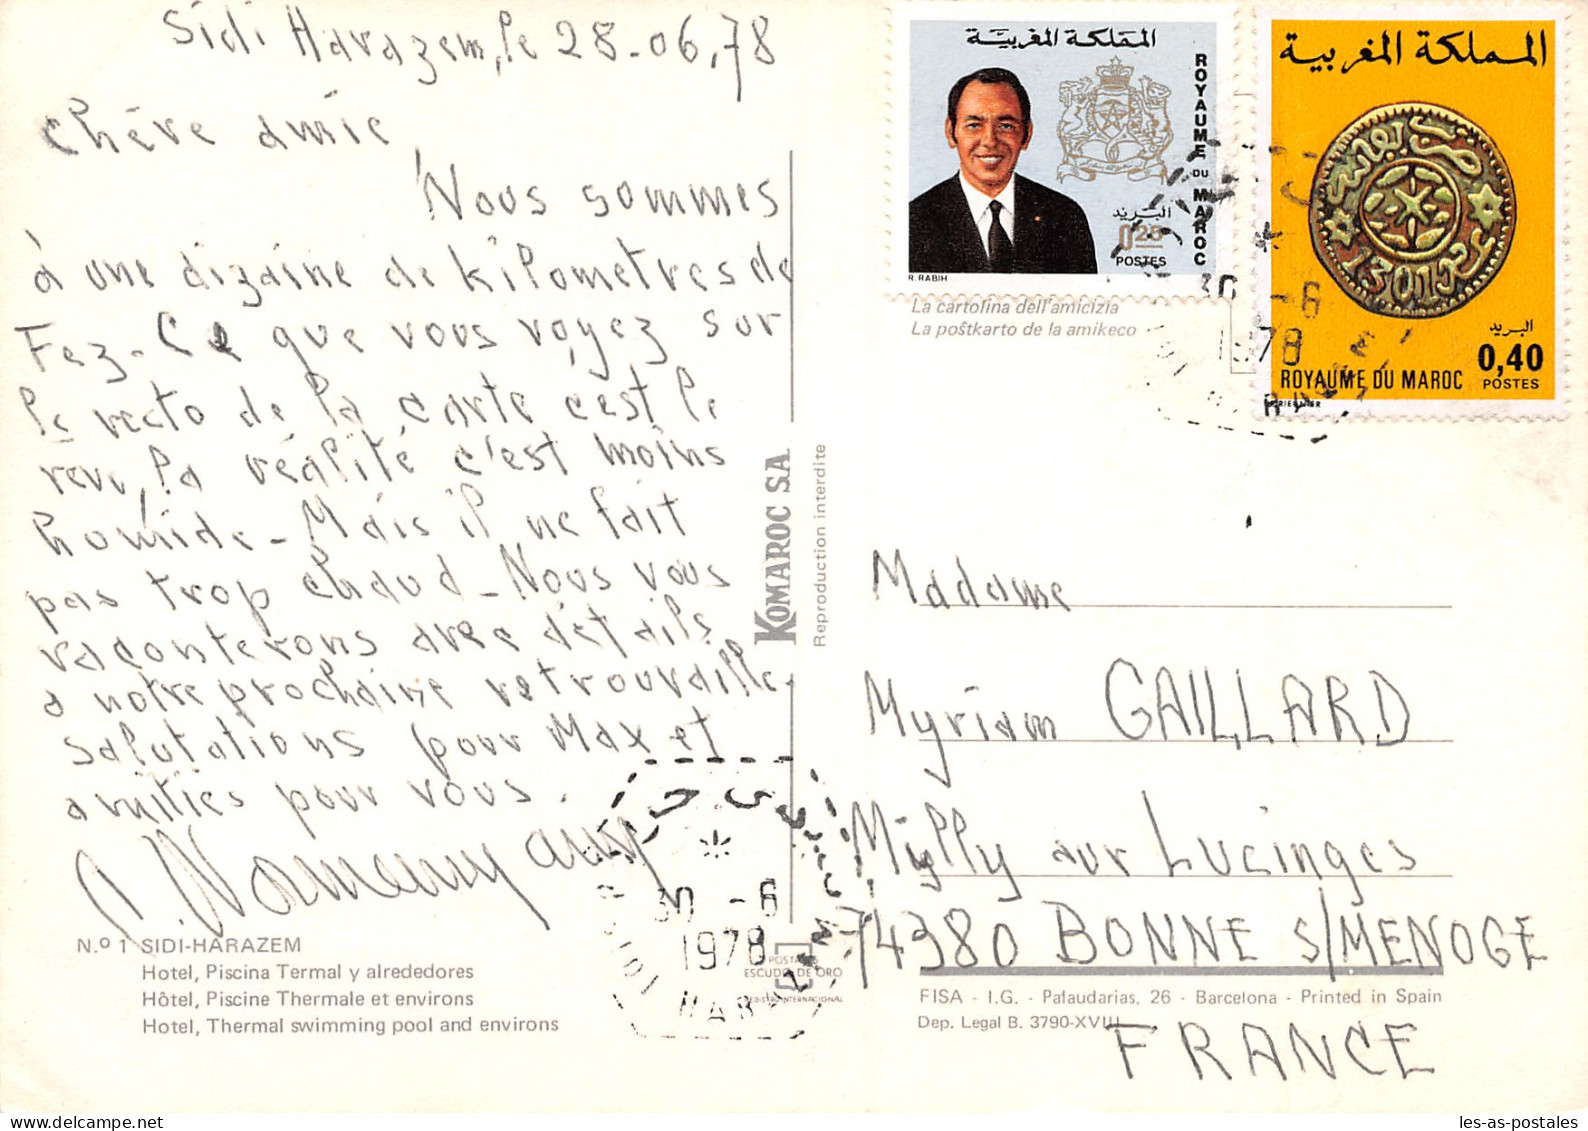 Sidi Harazem, le 28-06,78
Chère amie
Nous sommes
à une dizaine de kilomètres de
Fez - Ce que vous voyez sur
le recto de la carte c'est le
rêve, la réalité c'est moins
humide - Mais il ne fait
pas trop chaud - Nous vous
raconterons avec détails
a notre prochaine retrouvaille.
Salutations pour Max et
amitiés pour vous.
N.º 1 SIDI-HARAZEM
Hotel, Piscina Termal y alrededores
Hôtel, Piscine Thermale et environs
Hotel, Thermal swimming pool and environs
KOMAROC SA
Reproduction interdite
POSTALES
ESCUDO DE ORO
REGISTRO INTERNACIONAL
المملكة المغربية
ROYAUME DU MAROC
البريد
0,25
POSTES
R. RABIH
المملكة المغربية
1301
البريد
0,40
ROYAUME DU MAROC POSTES
La cartolina dell'amicizia
La poŝtkarto de la amikeco
30 -6
1978
SIDI HARAZEM
30 -6
1978
SIDI HARAZEM
Madame
Myriam GAILLARD
Milly sur Lucinges
74380 BONNE S/MENOGE
FRANCE
FISA - I.G. - Palaudarias, 26 - Barcelona - Printed in Spain
Dep. Legal B. 3790-XVIII
les-as-postales